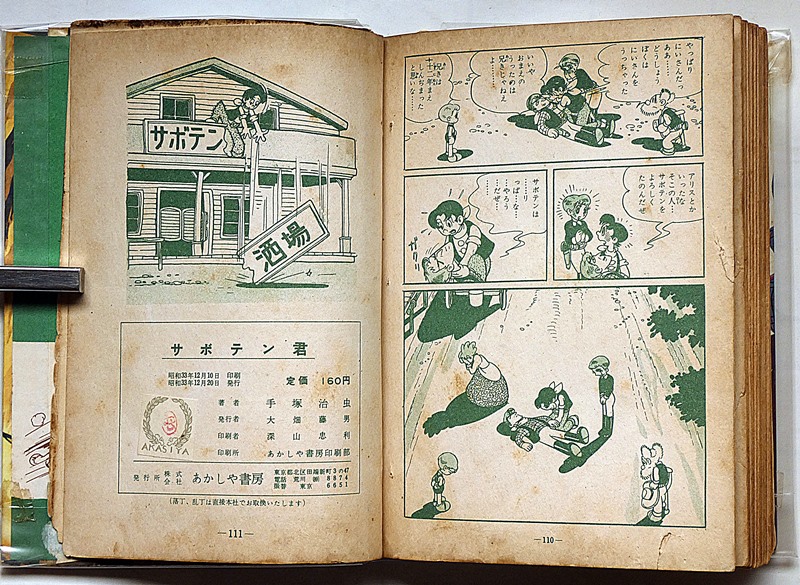 やっぱり
にいさんだっ
ああ……
どうしよう
ぼくは
にいさんを
うっちゃった
いいや
おまえの
うったのは
兄きじゃねえ
よ……
兄きは
十二年まえ
しんぢまった
と思いな……
アリスとか
いったな
そこの人…
サボテンを
よろしく
たのんだぜ
サボテンは
……り
っぱ…な…
……やろう
……だぜ…
ガクリ
—110—
サボテン
酒場
サボテン君
昭和33年12月10日 印刷
昭和33年12月20日 発行
定価 160円
著者 手塚治虫
発行者 大畑藤男
印刷者 深山忠利
印刷所 あかしや書房印刷部
AKASIYA
発行所 株式会社 あかしや書房
東京都北区田端新町3の47
電話 荒川 ㈹ 8874
振替 東京 6651
(落丁、乱丁は直接本社でお取換いたします)
—111—